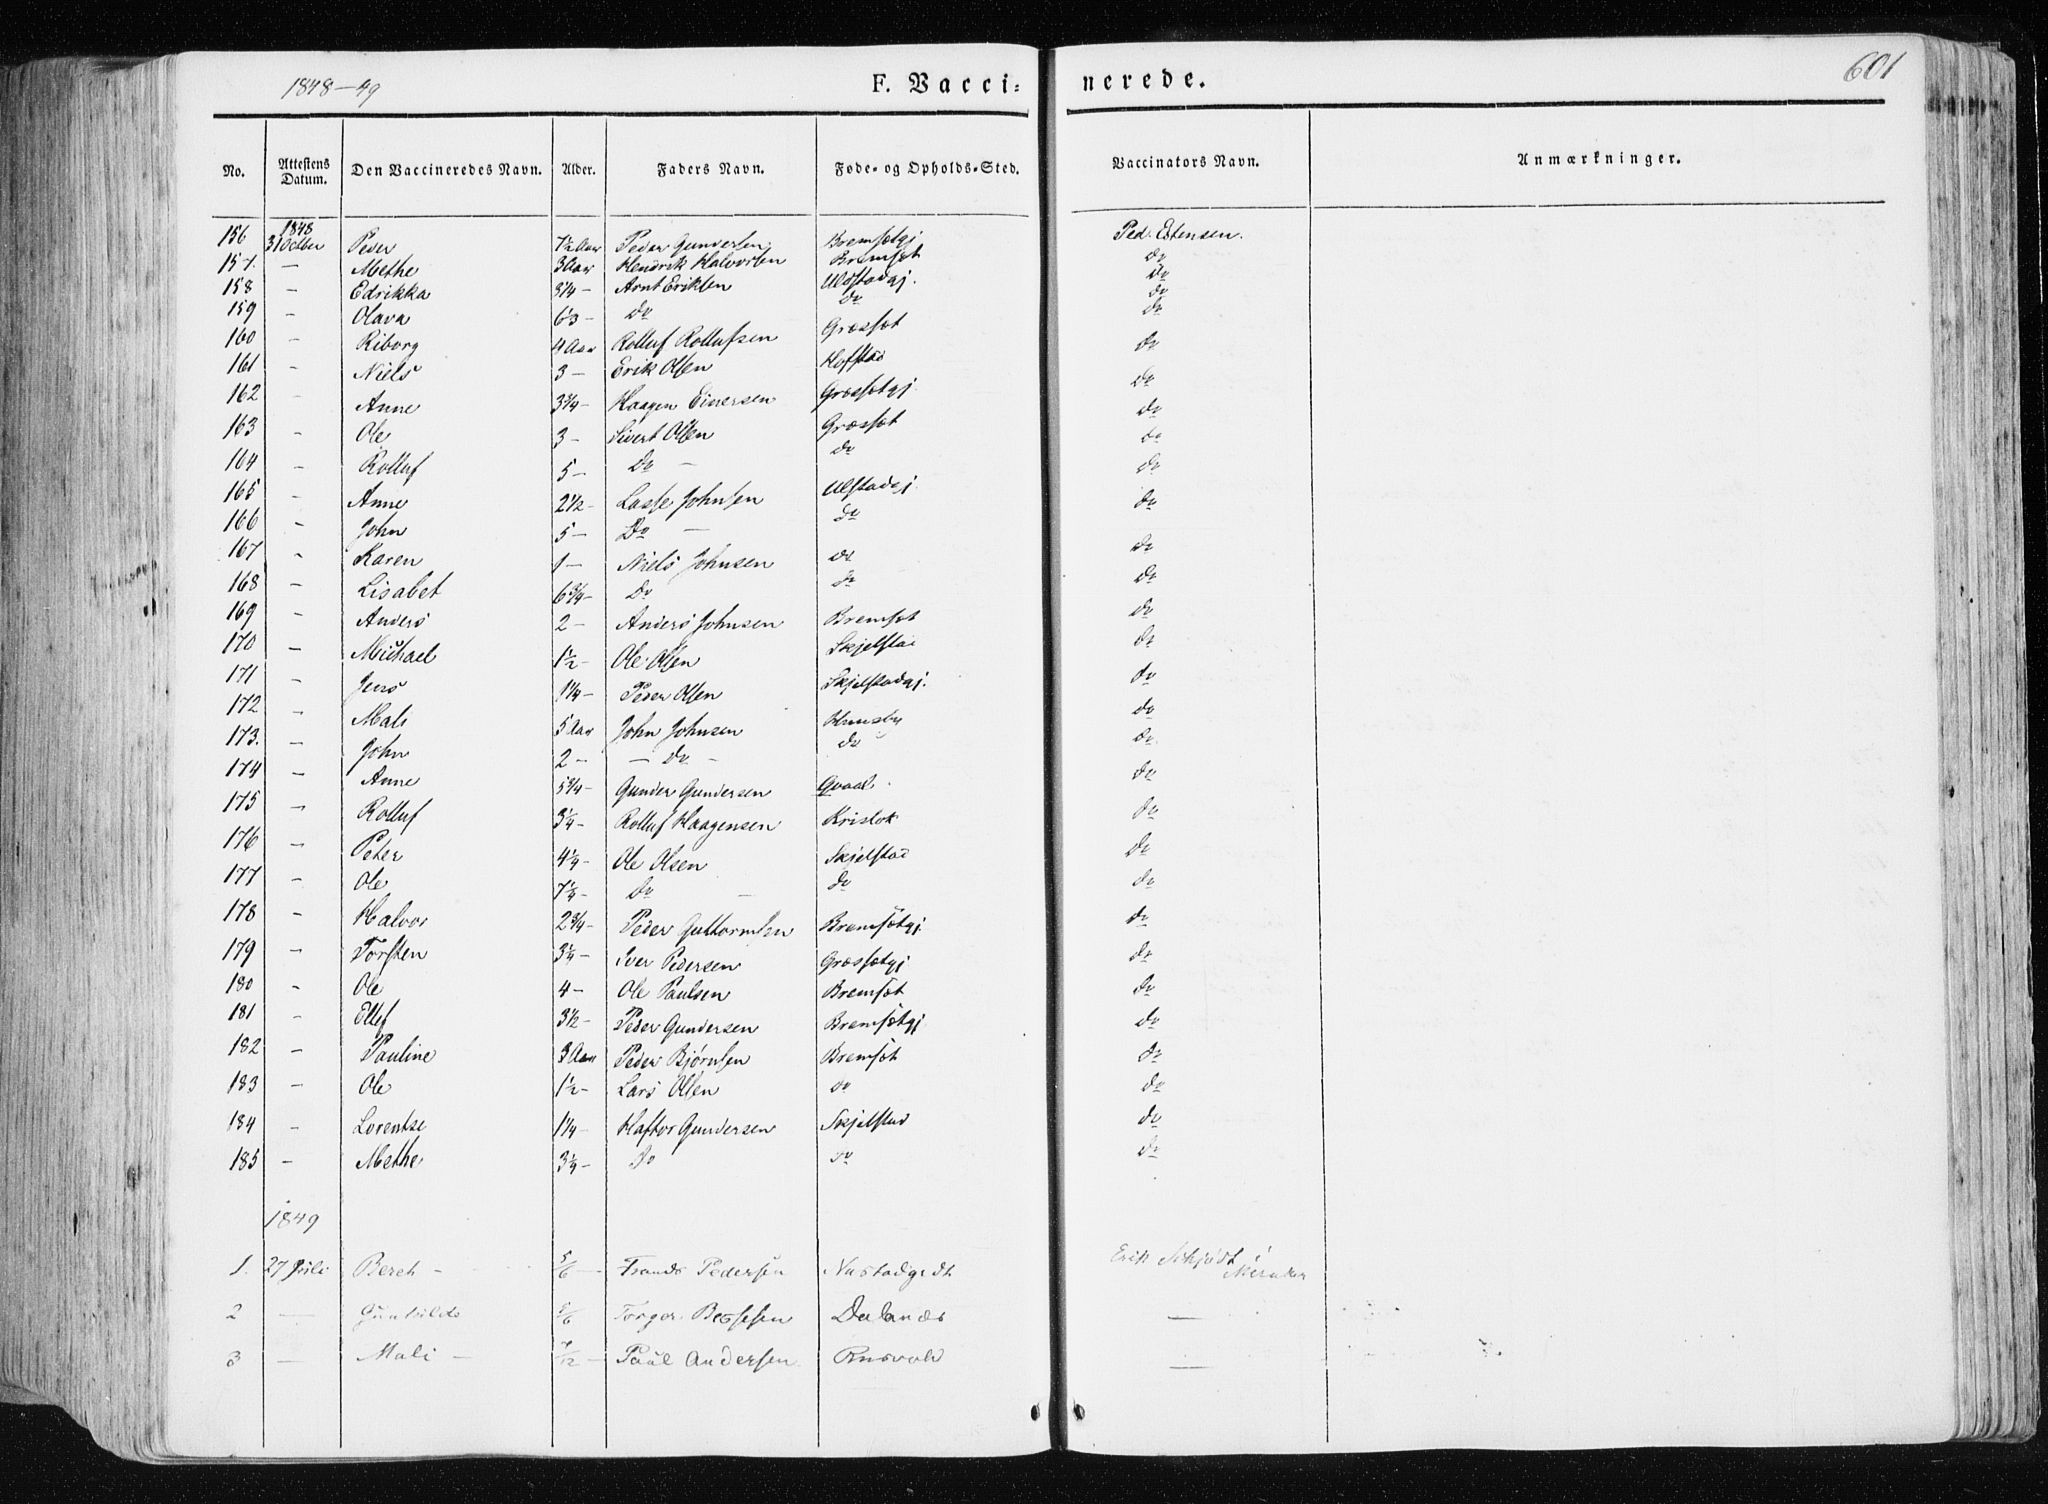 1848-49
F. Vacci= nerede.
601
No. Attestens Datum. Den Vaccineredes Navn. Alder. Faders Navn. Føde- og Opholds-Sted. Vaccinators Navn. Anmærkninger.
1848
156 31 October Peder 7½ Aar Peder Gundersen Bremsetgj Ped. Estensen.
157. - Methe 3 Aar Hendrik Halvorsen Bremset do
158 - Edrikka 3¼- Arnt Eriksen Ulstadgj. do
159 - Olava 6⅓- Do do do
160 - Riborg 4 Aar Rolluf Rollufsen Græsset do
161 - Niels 3 - Erik Olsen Hofstad do
162 - Anne 3¾- Haagen Einersen Græssetgj. do
163 - Ole 3 - Sivert Olsen Græsset do
164 - Rolluf 5 - Do - do do
165 - Anne 2½- Lasse Johnsen Ulstadgj. do
166 - John 5 - Do - do do
167 - Karen 1 - Niels Johnsen do do
168 - Lisabet 6¾- Do do do
169 - Anders 2 - Anders Johnsen Bremset do
170 - Michael 1½- Ole Olsen Skjelstad do
171 - Jens 1¼- Peder Olsen Skjelstadgj. do
172 - Mali 5 Aar John Johnsen do
173. - John 2 - - Do - do do
174 - Anne 5¾- Gunder Gundersen Qvaal. do
175 - Rolluf 3¼- Rolluf Haagensen Kristok do
176 - Peter 4¼- Ole Olsen Skjelstad do
177 - Ole 7¼- Do - do do
178 - Halvor 2¾- Peder Guttormsen Bremsetgj. do
179 - Torsten 3¼- Iver Pedersen Græssetgj do
180 - Ole 4 - Ole Paulsen Bremset do
181 - Ellef 3½- Peder Gundersen Bremsetgj. do
182 - Pauline 3 Aar Peder Bjørnsen Bremset do
183 - Ole 1½- Lars Olsen do do
184 - Lorentse 1¼- Haftor Gundersen Skjelstad do
185 - Methe 3¼- Do do do
1849
1. 27 Juli Beret - 5/6 - Trands Pedersen Nustadgrdt Erik Schjødt Meraker
2 - Gunhilda 5/6 Torger Dalanæs -
3 - Mali - 7/12 - Paul Andersen Rusvold -